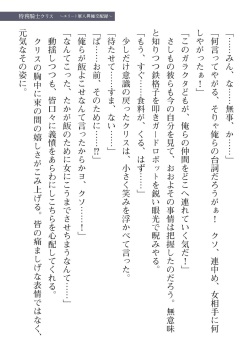 特務騎士クリス ―エリート獣人異種交配録―
「……みん、な……無事、か……」
「何言ってやがる、そりゃ俺らの台詞だろうがぁ！　クソ、連中め、女相手に何
しやがったぁ！」
「このガラクタどもが、俺らの仲間をどこへ連れていく気だ！」
さしもの彼らも今の自分を見て、おおよその事情は把握したのだろう。無意味
と知りつつ鉄格子を叩きガードロボットを鋭い眼光で睨みやる。
「もう、すぐ……食料が、くる、はず……」
少しだけ意識の戻ったクリスは、小さく笑みを浮かべて言った。
「待たせて……すま、ない……」
「ば……お前、そのために……!?」
「俺らが飯よこせなんて言ったからかヨ、クソ……！」
「なんてこった、たかが飯のために女にこうまでさせちまうなんて……」
動揺しつつも、皆口々に義憤をあらわにしこちらを心配してくれる。
クリスの胸中に束の間の嬉しさがこみ上げる。皆の痛ましげな表情ではなく、
元気なその姿に。